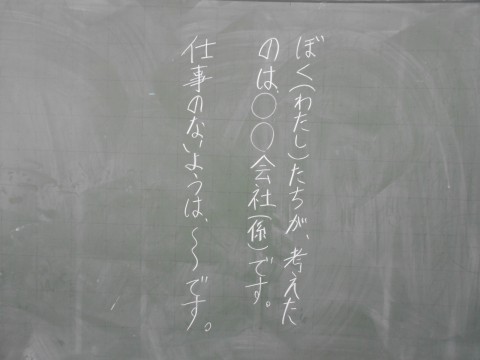 ぼく(わたし)たちが、考えた
のは、○○会社(係)です。
仕事のないようは、〜〜です。